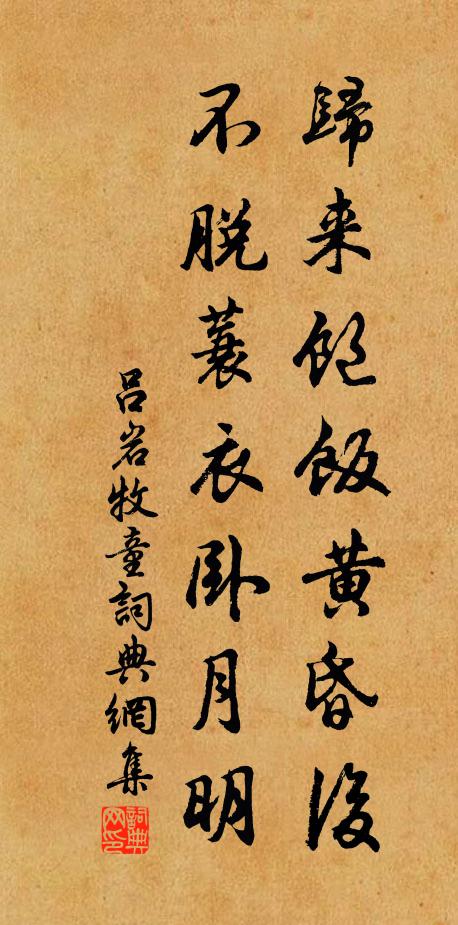 歸来飽飯黄昏後
不脱蓑衣卧月明
吕岩牧童詞典網集
詞典网印